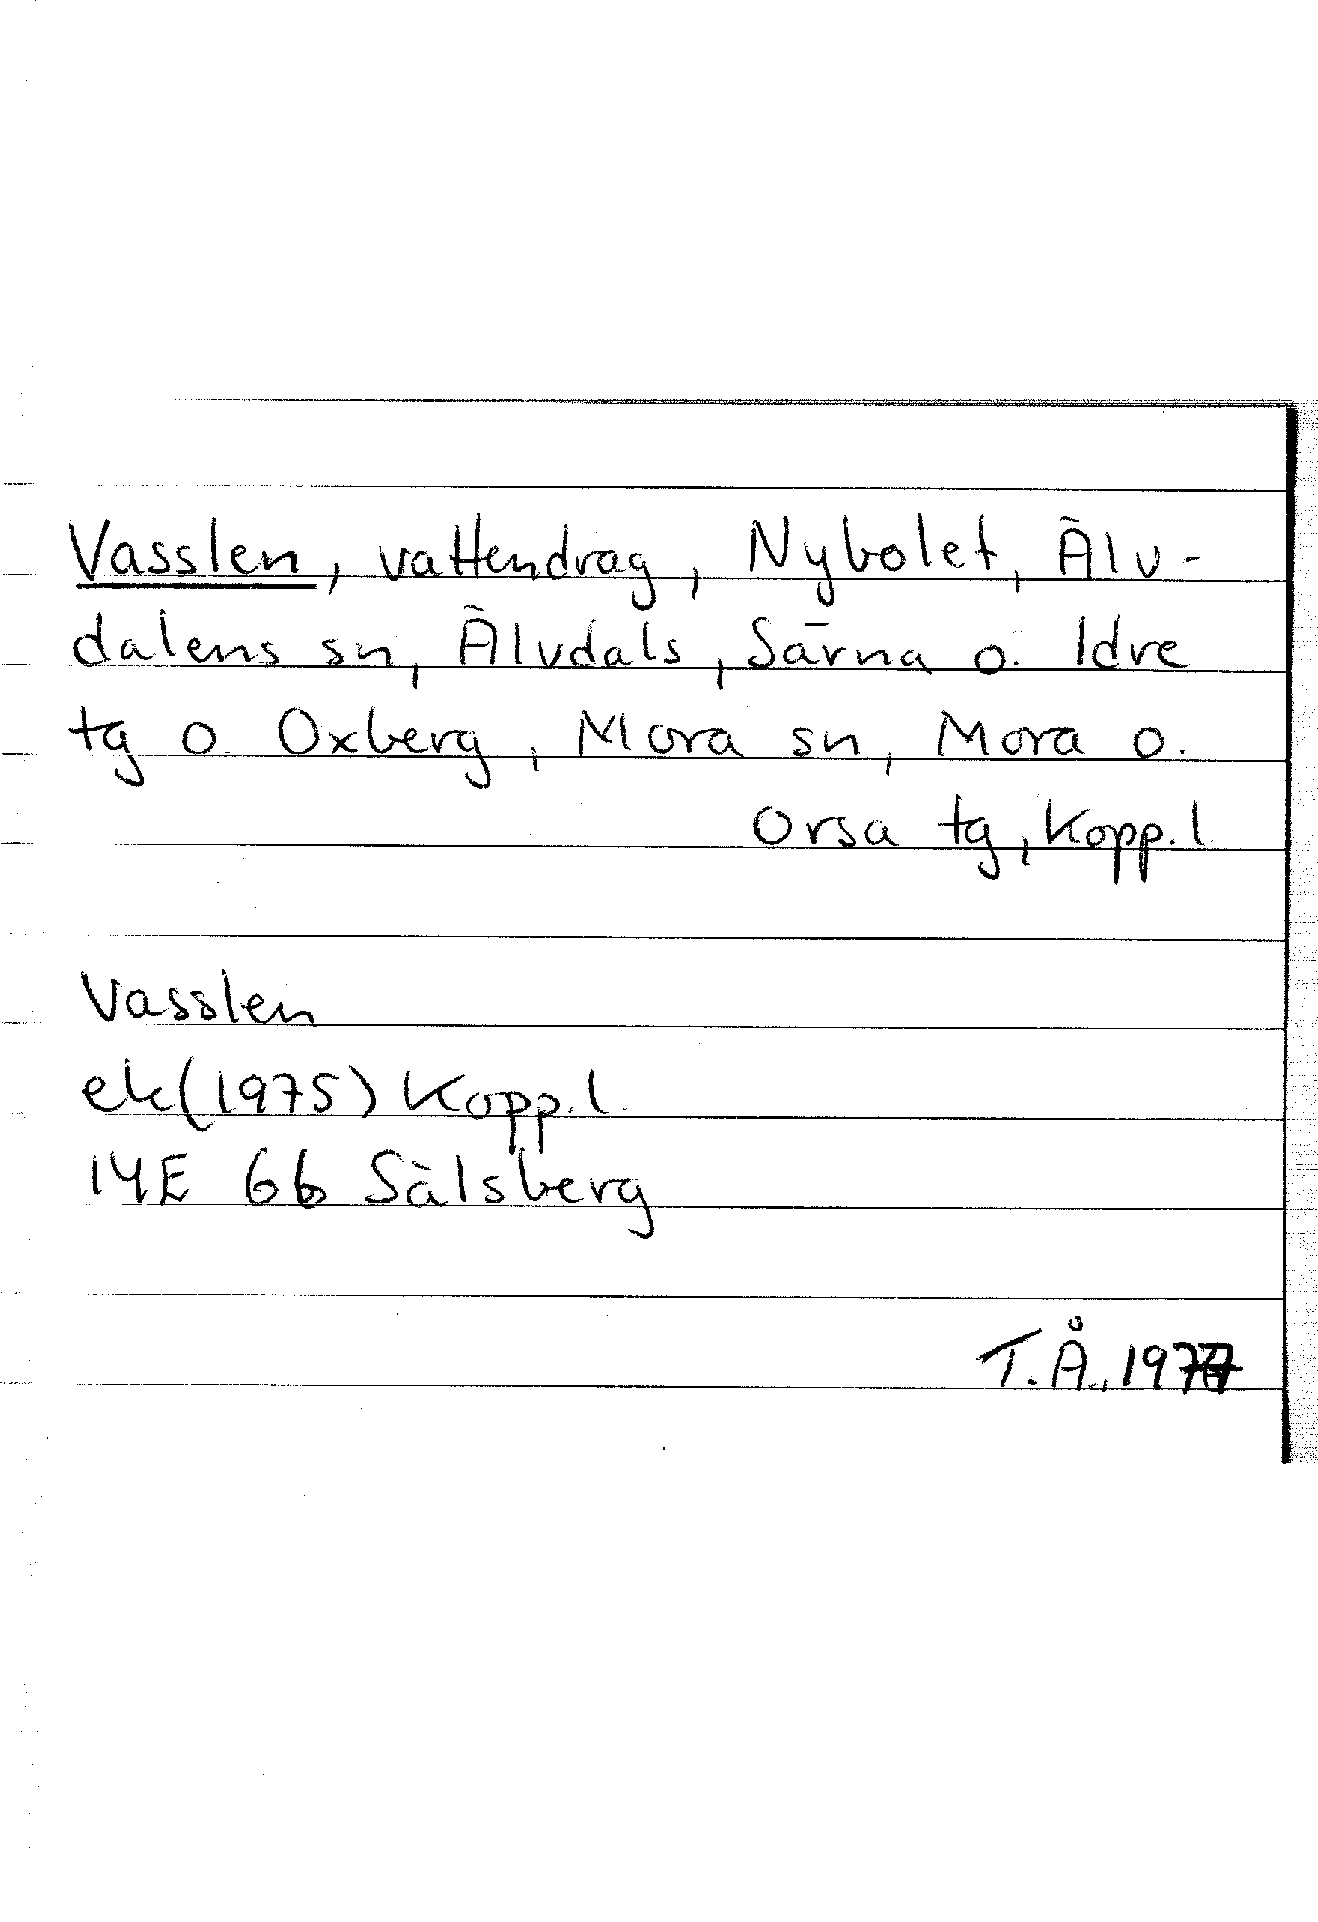 Vasslen, vattendrag, Nybolet, Älv-
dalens sn, Älvdals, Särna o. Idre
tg o Oxberg, Mora sn, Mora o.
Orsa tg, Kopp. l
Vasslen
ek (1975) Kopp. l.
14E 6b Sälsberg
T. Å., 1977